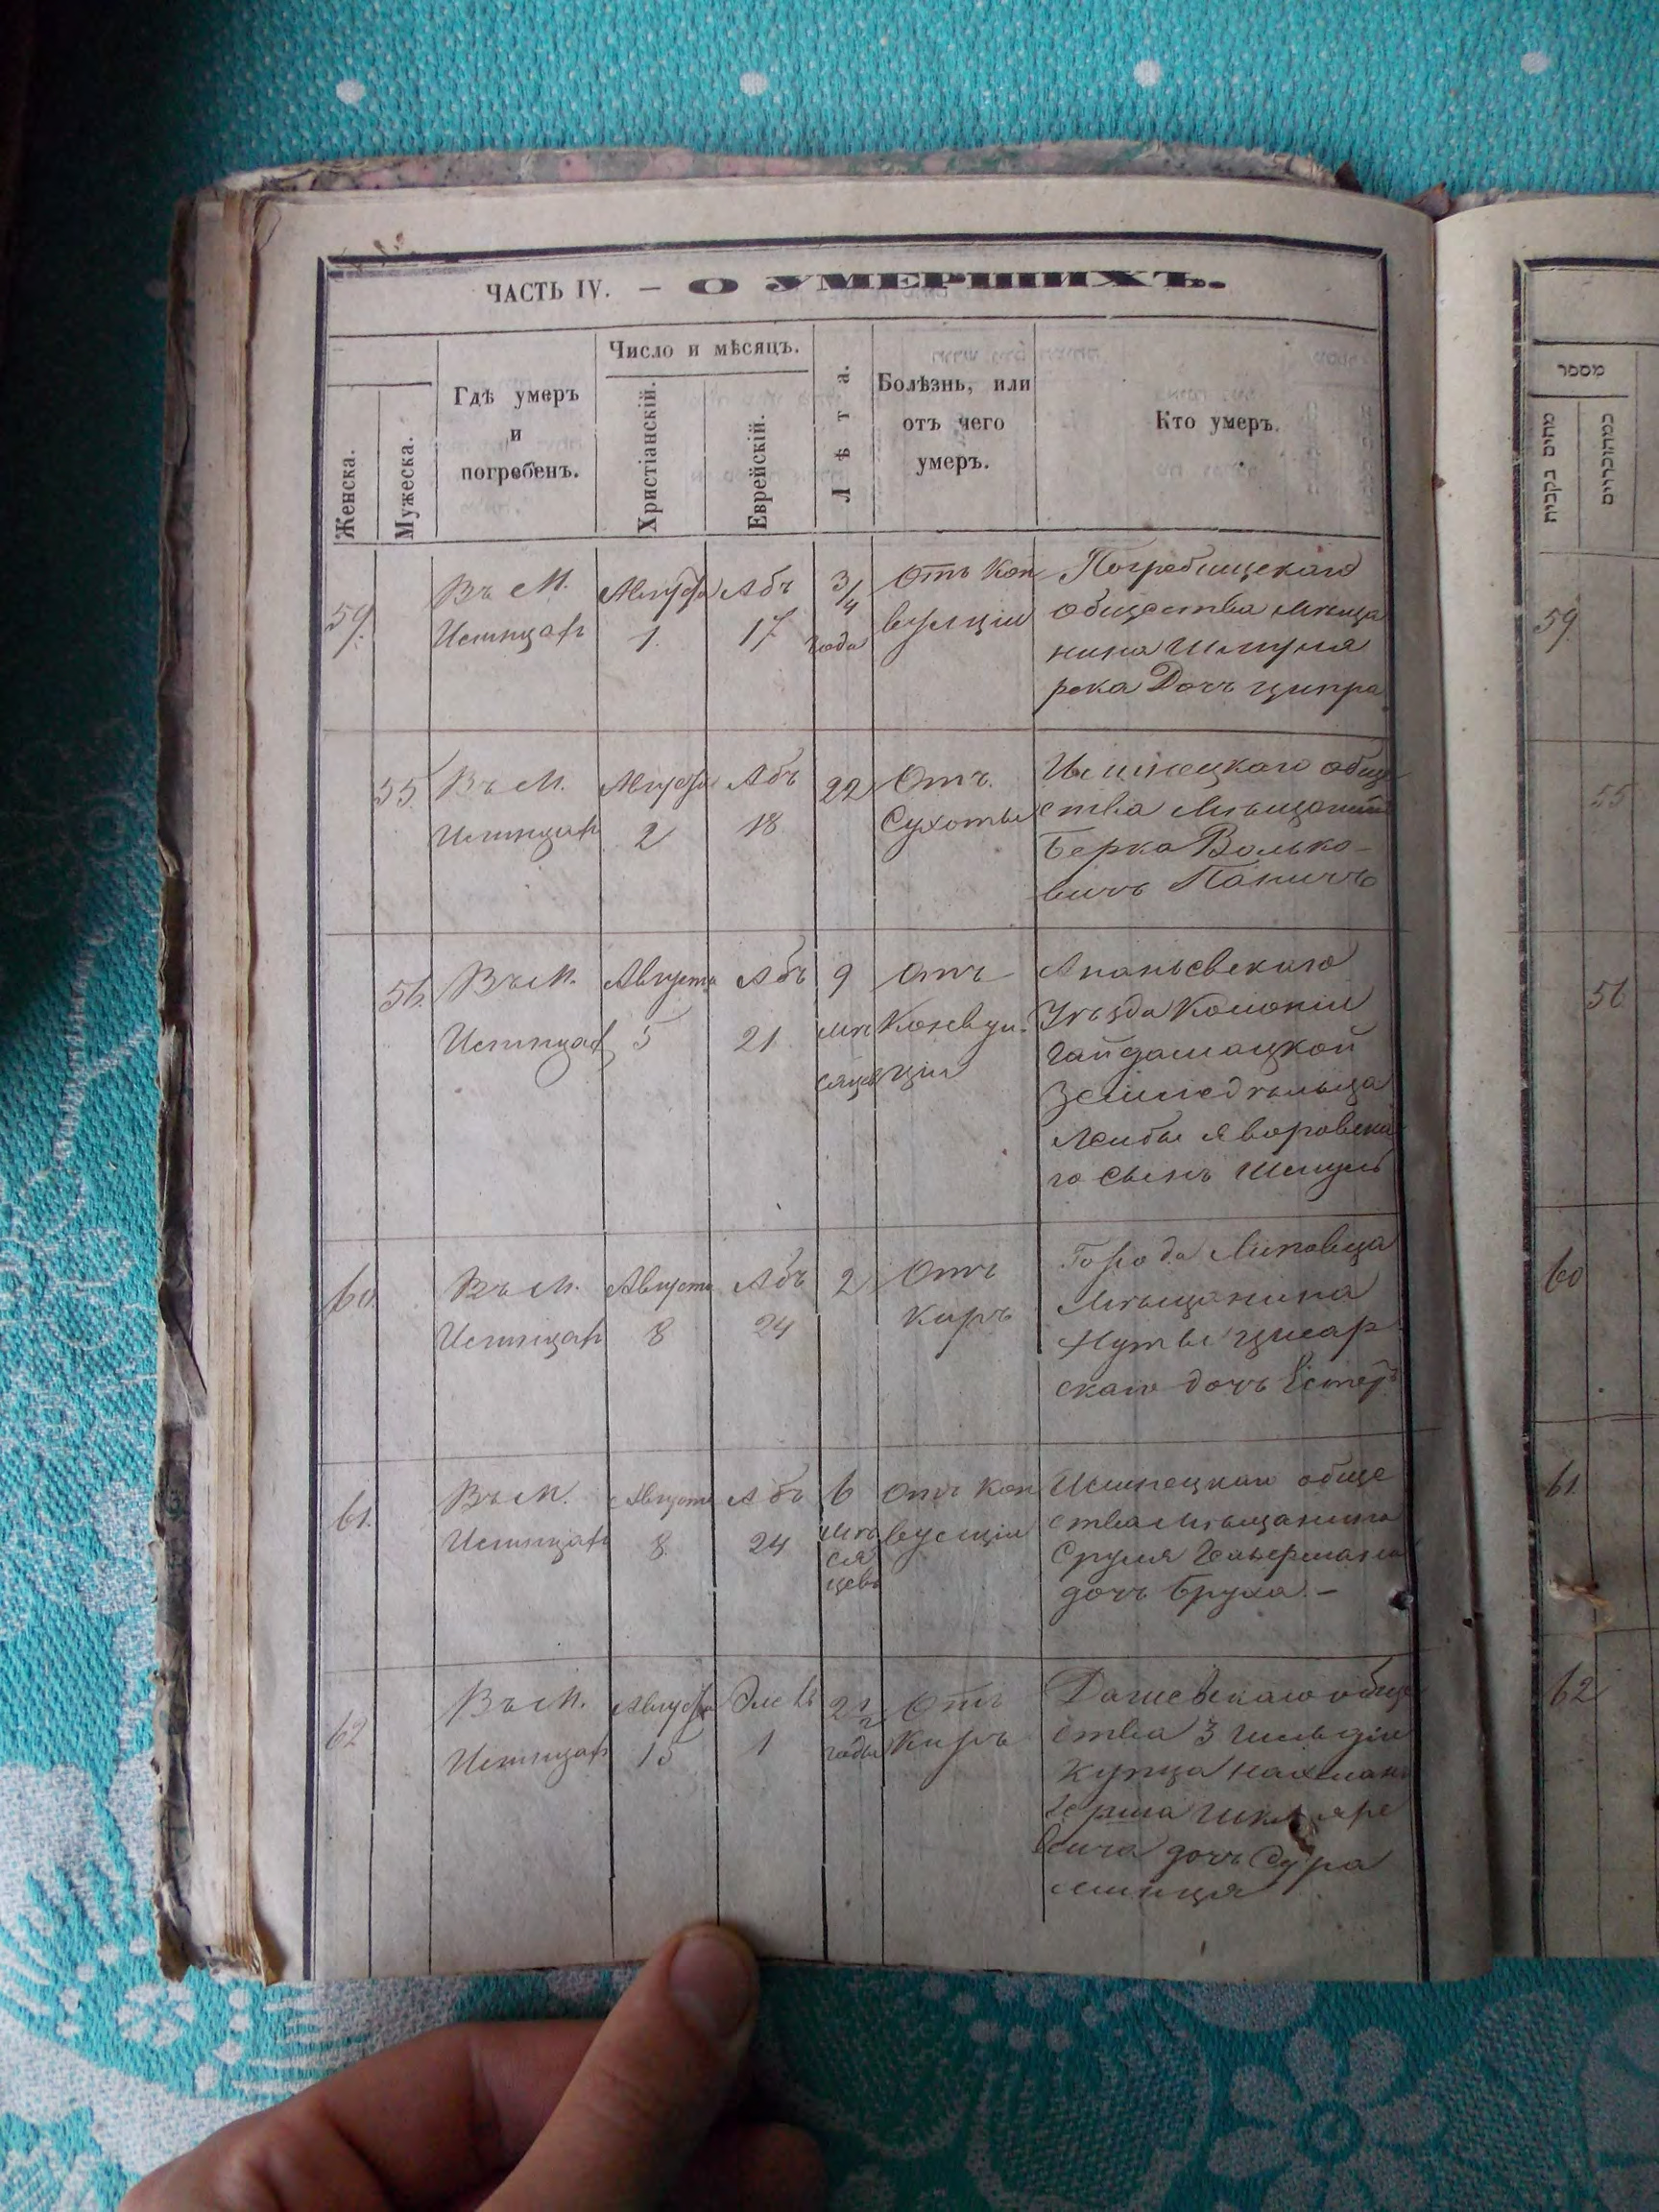 ЧАСТЬ IV. — О УМЕРШИХЪ.
Женска.
Мужеска.
Гдѣ умеръ
и
погребенъ.
Число и мѣсяцъ.
Христіанскій.
Еврейскій.
Лѣта.
Болѣзнь, или
отъ чего
умеръ.
Кто умеръ.
59.
Въ М.
Августа
1.
Абъ
17
3/4
года
Отъ Кон
вулціи
Погребищскаго
общества мѣща
нина Шмуля
река Дочъ Ципра
55
Въ М.
Августа
2
Абъ
18
22
Отъ
Сухоты
общe
ства Мѣщанинъ
Берко Волько-
вичъ Паничъ
56.
Въ М.
Августа
5
Абъ
21
9
мѣ
сяцев
Отъ
Конвул.
ціи
Ананьевскаго
Уѣзда Колоніи
Гайдамацкой
Земледѣльца
Лейбы Яворовска
го сынъ Шмуль
60
Въ М.
Августа
8
Абъ
24
2
Отъ
Киръ
Города Липовца
Мѣщанина
Нуты
скаго дочъ Естеръ
61.
Въ М.
Августа
8.
Абъ
24
6
мѣ
ся
цевъ
Отъ Кон
вулціи
обще
ства Мѣщанина
Сруля
дочъ Бруха. —
62
Въ М.
Августа
15
Элюль
1
2 1/2
года
Отъ
Киръ
Дашевскаго обще
ства 3 Гильдіи
Купца Нахмана
Герша Шкляре
вича дочъ Сура
מספר
מתים נקבות
59
55
56
60
61
62